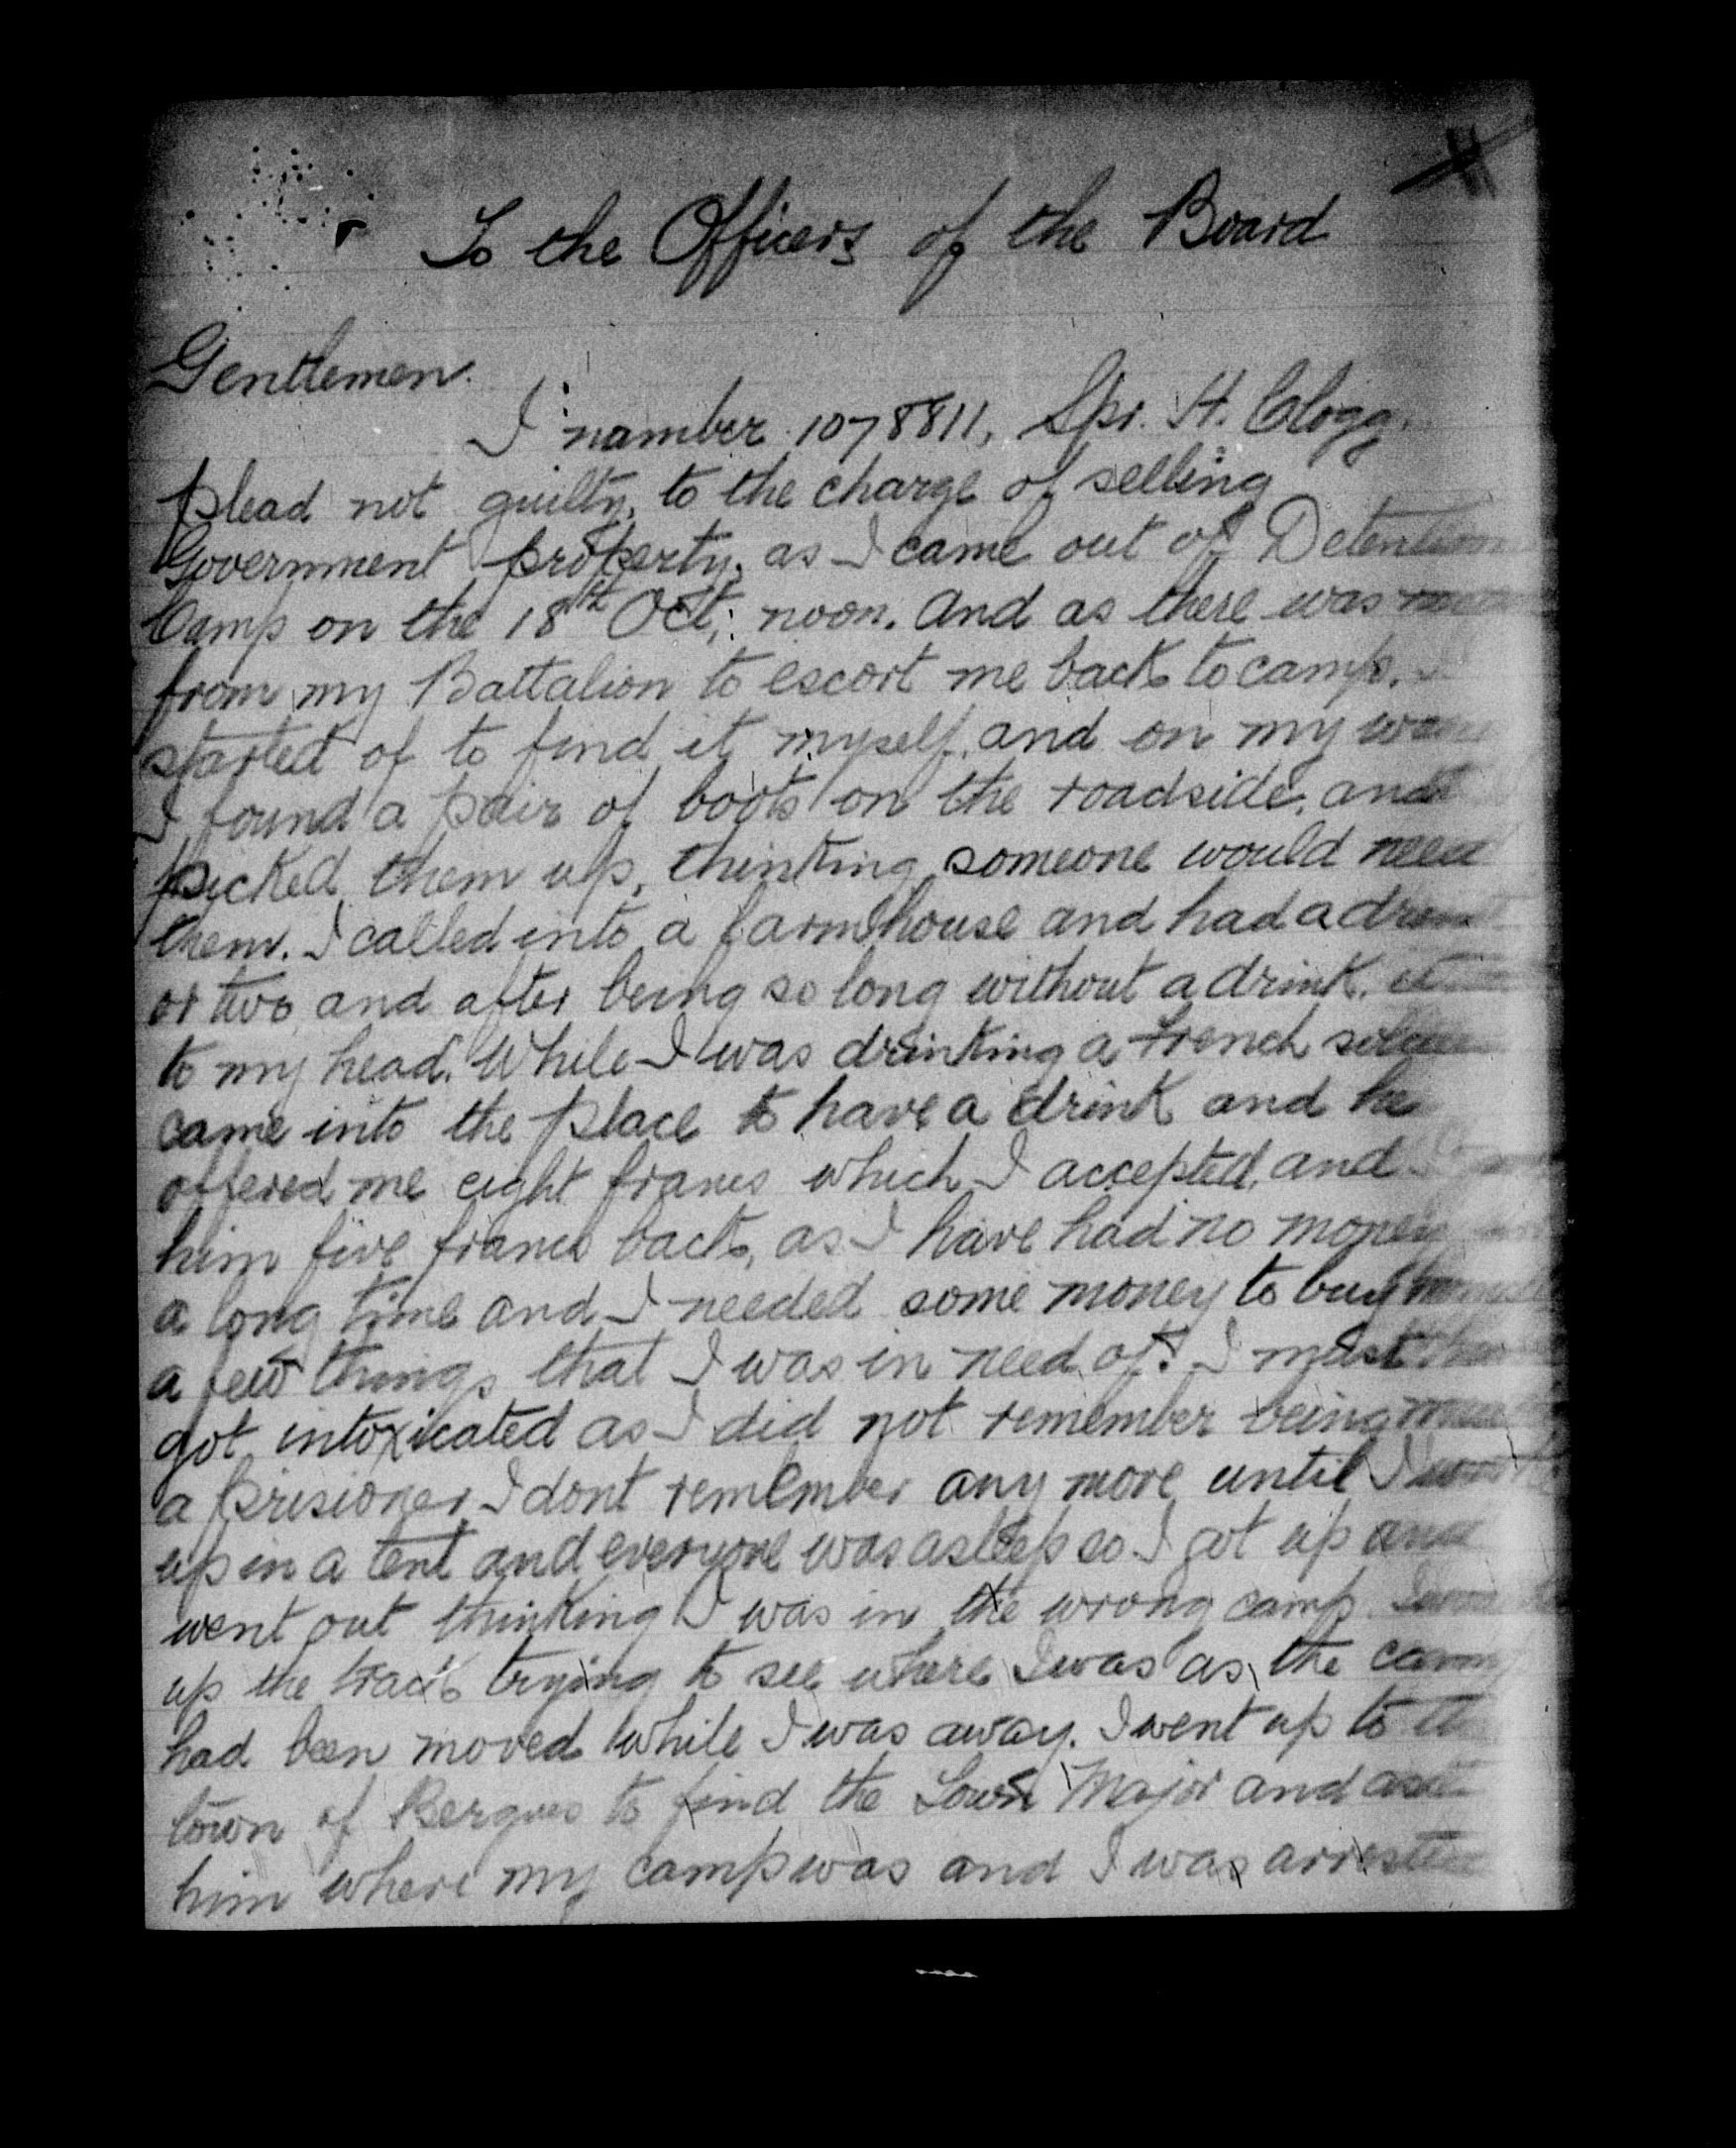 To the Officers of the Board
Gentlemen.
I number 1078811, Spr. H. Clogg,
plead not guilty, to the charge of selling
Government property, as I came out of Detention
Camp on the 18th Oct, noon. And as there was
from my Battalion to escort me back to camp, I
started of to find it myself, and on my way
I found a pair of boots on the roadside, and
picked them up, thinking someone would need
them. I called into a farmhouse and had a drink
or two and after being so long without a drink, it
to my head. While I was drinking a French
came into the place to have a drink and he
offered me eight francs which I accepted, and
him five francs back, as I have had no money
a long time and I needed some money to buy
a few things that I was in need of. I must
got intoxicated as I did not remember being
a prisioner, I dont remember any more until I
up in a tent and everyone was asleep so I got up and
went out thinking I was in the wrong camp
up the track trying to see where I was as the camp
had been moved while I was away. I went up to the
town of Bergues to find the Town Major and ask
him where my camp was and I was arrested